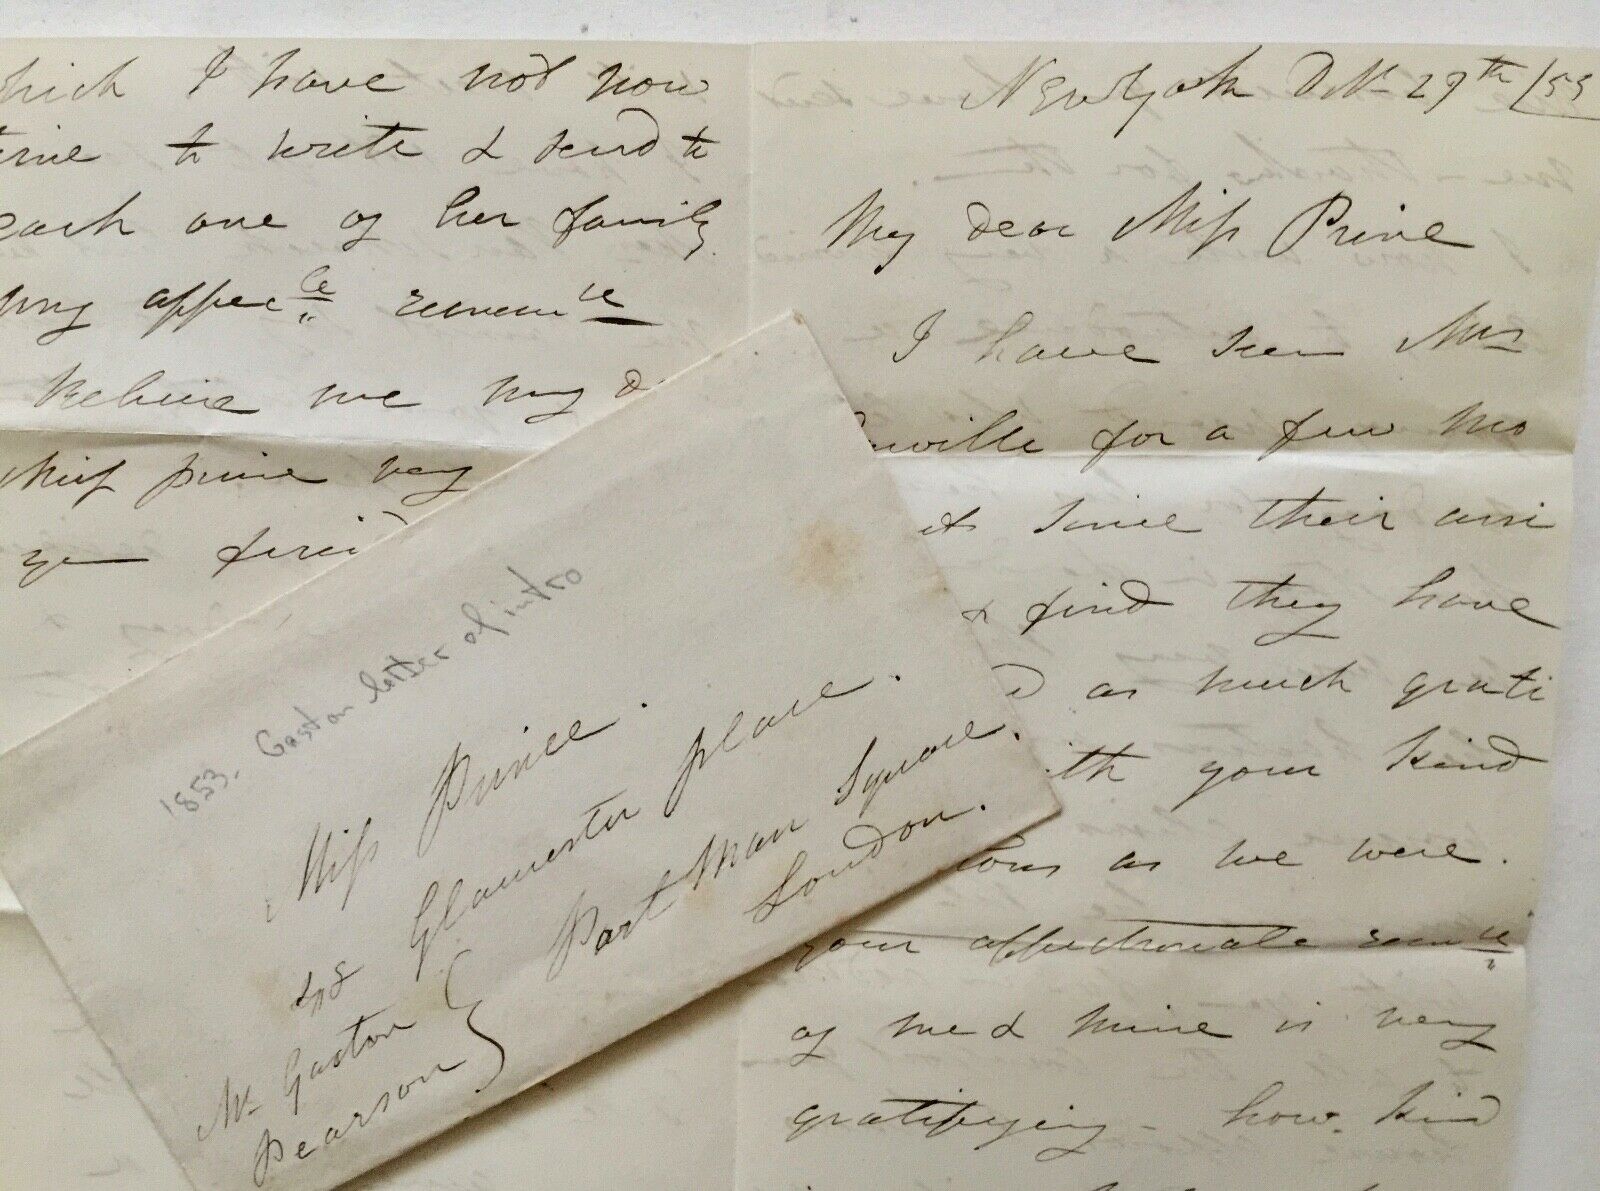 which I have not now
time to write & send to
each one of her family
my affec ce remem ce
Believe me my d
Miss Prince very
friend
New York 29th /53
My dear Miss Prince
I have seen Mrs
for a few mo
since their arri
& find they have
as much grati
ith your kind
tions as we were.
your affectionate rem ce
of me & mine is very
gratifying - how kind
1853. Gaston letter of intro
Miss Prince.
Gloucester place.
Port Man Square.
London.
Mr Gaston
Pearson